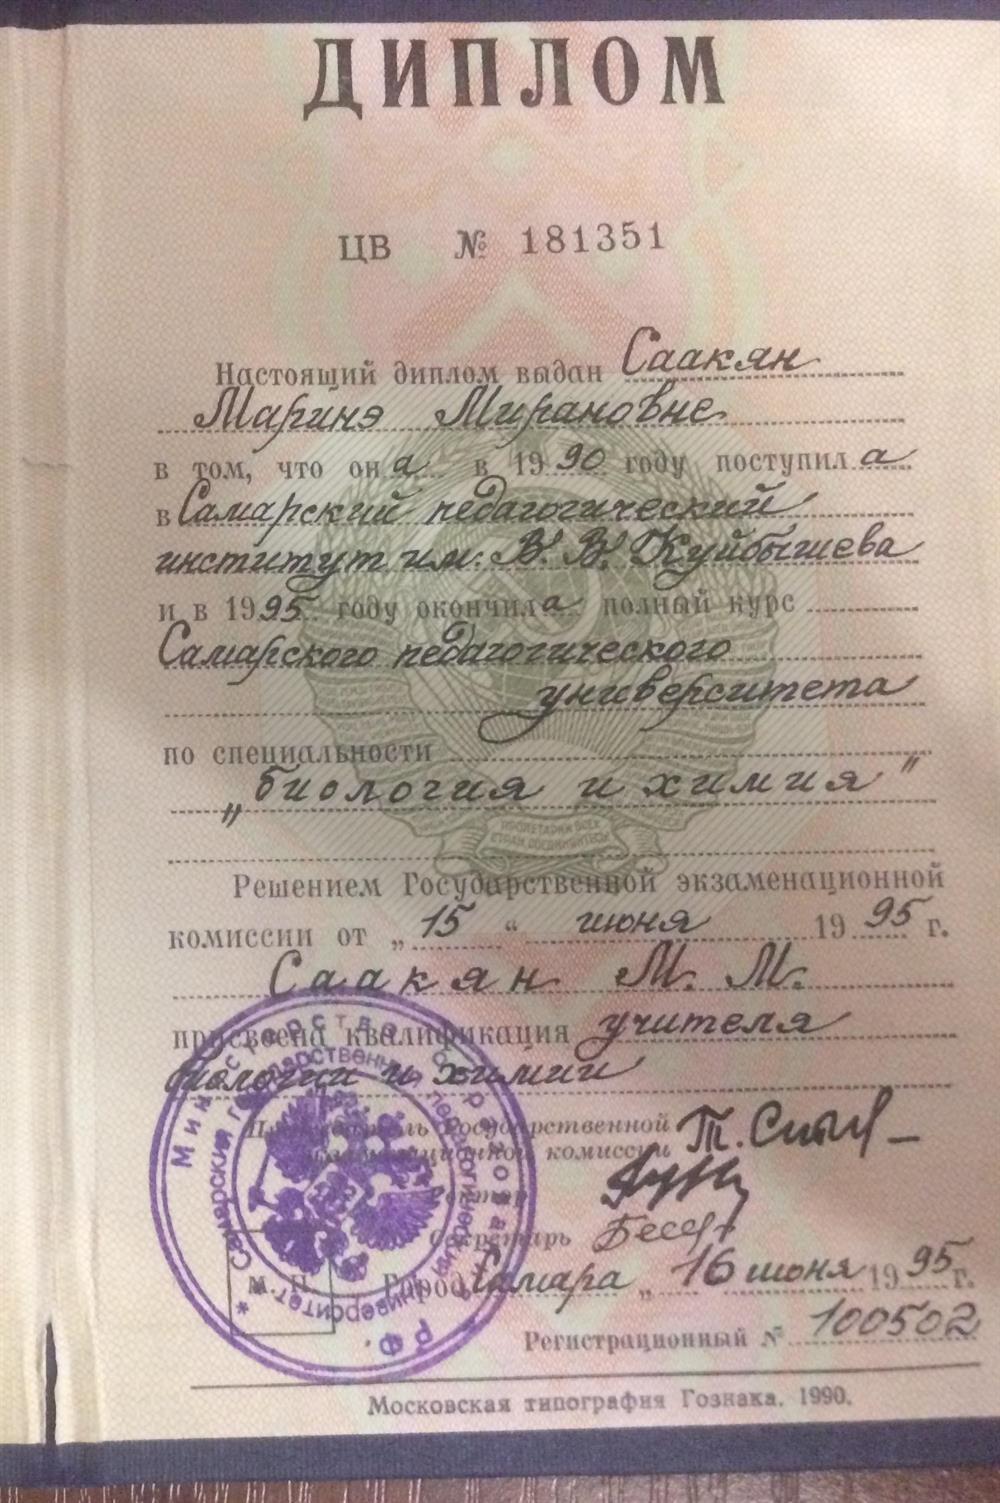 ДИПЛОМ
ЦВ № 181351
Настоящий диплом выдан Саакян
Маринэ Мирановне
в том, что она в 1990 году поступила
в Самарский педагогический
институт им. В. В. Куйбышева
и в 1995 году окончила полный курс
Самарского педагогического
университета
по специальности
„биология и химия"
Решением Государственной экзаменационной
комиссии от „15" июня 1995 г.
Саакян М. М.
присвоена квалификация учителя
биологии и химии
Председатель Государственной
экзаменационной комиссии
Ректор
Секретарь
М. П. Город Самара „16 июня 1995 г.
Регистрационный № 100502
Московская типография Гознака. 1990.
Министерство образования РФ.
* Самарский государственный педагогический университет
ПРОЛЕТАРИИ ВСЕХ
СТРАН, СОЕДИНЯЙТЕСЬ!